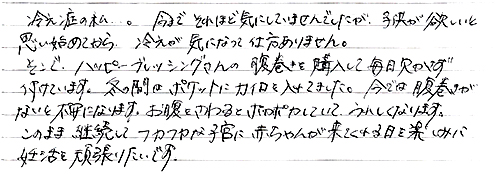 冷え症の私…。今まで それほど気にしていませんでしたが、子供が欲しいと
思い始めてから 冷えが気になって仕方ありません。
そこで、ハッピーブレッシングさんの 腹巻きを購入して毎日欠かさず
付けています。冬の間は ポケットにカイロを入れてました。今では 腹巻きが
ないと不安になります。お腹をさわると ポカポカしていて うれしくなります。
このまま 継続して フカフカな子宮に 赤ちゃんが来てくれる日を楽しみに
妊活を頑張りたいです。